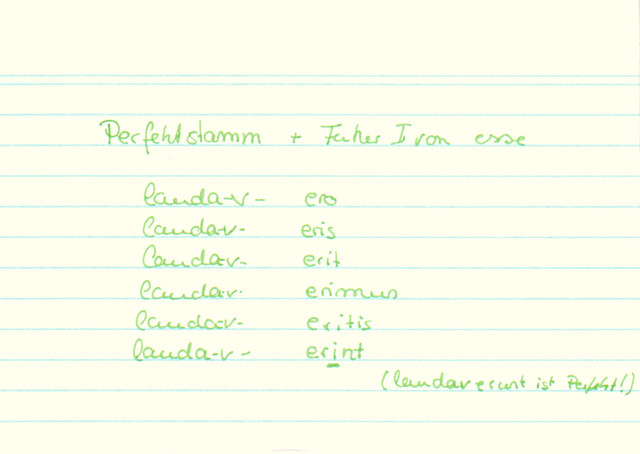 Perfektstamm + Futur I von esse
lauda-v- ero
lauda-v- eris
lauda-v- erit
lauda-v- erimus
lauda-v- eritis
lauda-v- erint
(laudaverunt ist Perfekt!)